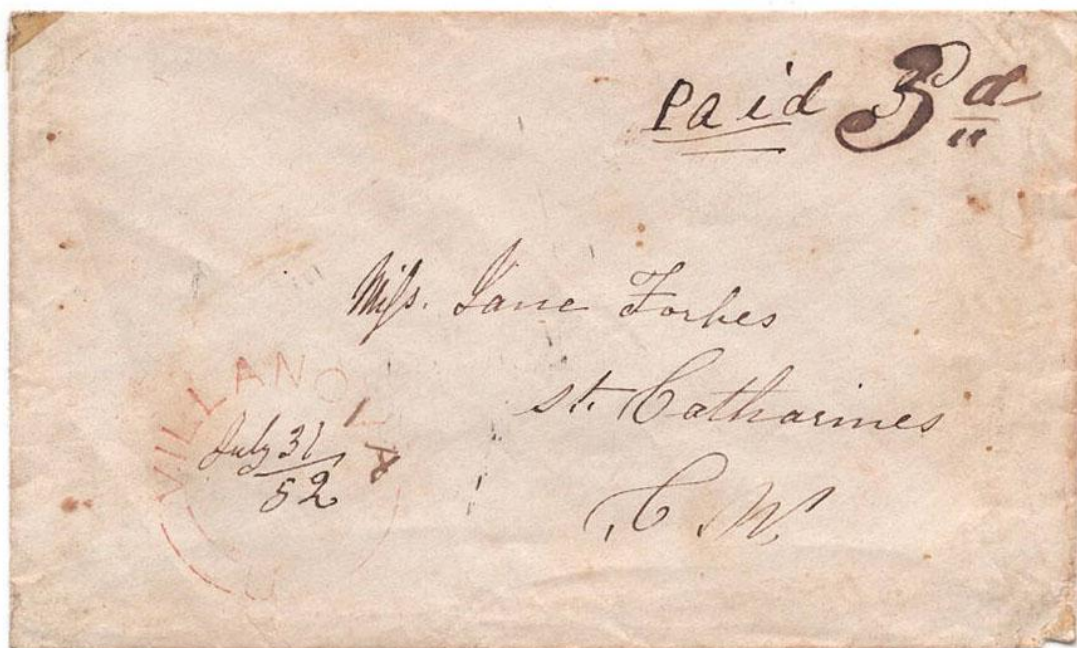 Paid 3d
Miss. Jane Forbes
St. Catharines
C. W.
VILLANOVA
July 31
52